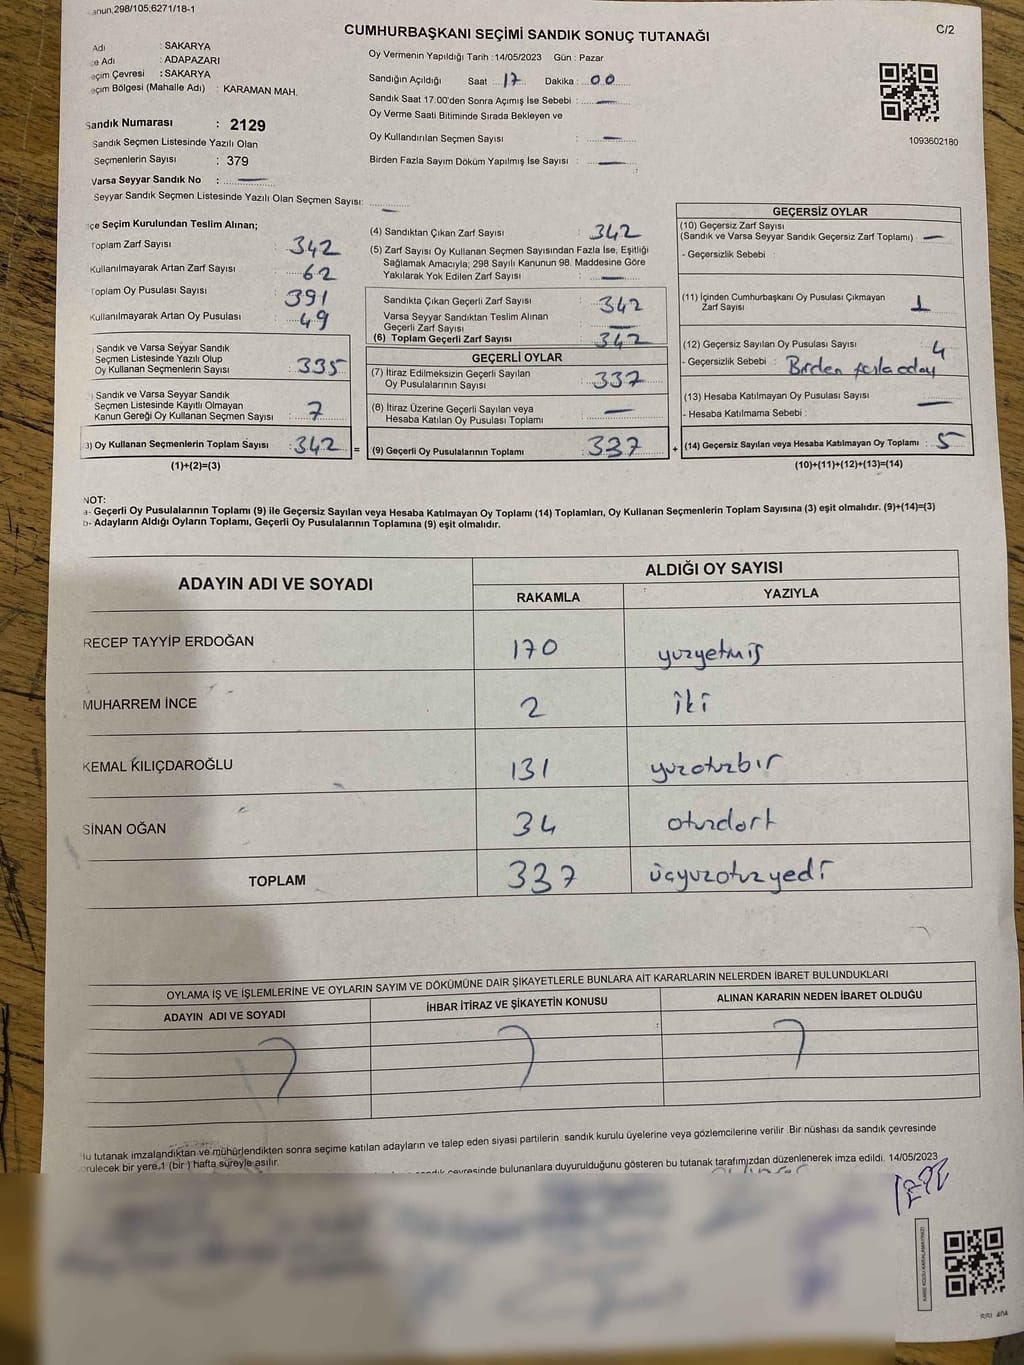 anun,298/105,6271/18-1
C/2
CUMHURBAŞKANI SEÇİMİ SANDIK SONUÇ TUTANAĞI
Adı : SAKARYA
çe Adı : ADAPAZARI
eçim Çevresi : SAKARYA
eçim Bölgesi (Mahalle Adı) : KARAMAN MAH.
Sandık Numarası : 2129
Sandık Seçmen Listesinde Yazılı Olan
Seçmenlerin Sayısı : 379
Varsa Seyyar Sandık No : —
Seyyar Sandık Seçmen Listesinde Yazılı Olan Seçmen Sayısı: —
Oy Vermenin Yapıldığı Tarih : 14/05/2023 Gün : Pazar
Sandığın Açıldığı Saat 17 Dakika : 00
Sandık Saat 17:00'den Sonra Açımış İse Sebebi : —
Oy Verme Saati Bitiminde Sırada Bekleyen ve
Oy Kullandırılan Seçmen Sayısı : —
Birden Fazla Sayım Döküm Yapılmış İse Sayısı : —
1093602180
çe Seçim Kurulundan Teslim Alınan;
Toplam Zarf Sayısı : 342
Kullanılmayarak Artan Zarf Sayısı : 62
Toplam Oy Pusulası Sayısı : 391
Kullanılmayarak Artan Oy Pusulası : 49
Sandık ve Varsa Seyyar Sandık
Seçmen Listesinde Yazılı Olup
Oy Kullanan Seçmenlerin Sayısı : 335
Sandık ve Varsa Seyyar Sandık
Seçmen Listesinde Kayıtlı Olmayan
Kanun Gereği Oy Kullanan Seçmen Sayısı : 7
3) Oy Kullanan Seçmenlerin Toplam Sayısı : 342 =
(1)+(2)=(3)
(4) Sandıktan Çıkan Zarf Sayısı : 342
(5) Zarf Sayısı Oy Kullanan Seçmen Sayısından Fazla İse, Eşitliği
Sağlamak Amacıyla, 298 Sayılı Kanunun 98. Maddesine Göre
Yakılarak Yok Edilen Zarf Sayısı : —
Sandıkta Çıkan Geçerli Zarf Sayısı : 342
Varsa Seyyar Sandıktan Teslim Alınan
Geçerli Zarf Sayısı : —
(6) Toplam Geçerli Zarf Sayısı : 342
GEÇERLİ OYLAR
(7) İtiraz Edilmeksizin Geçerli Sayılan
Oy Pusulalarının Sayısı : 337
(8) İtiraz Üzerine Geçerli Sayılan veya
Hesaba Katılan Oy Pusulası Toplamı : —
(9) Geçerli Oy Pusulalarının Toplamı : 337 +
GEÇERSİZ OYLAR
(10) Geçersiz Zarf Sayısı
(Sandık ve Varsa Seyyar Sandık Geçersiz Zarf Toplamı) : —
- Geçersizlik Sebebi :
(11) İçinden Cumhurbaşkanı Oy Pusulası Çıkmayan
Zarf Sayısı : 1
(12) Geçersiz Sayılan Oy Pusulası Sayısı : 4
- Geçersizlik Sebebi : Birden fazla aday
(13) Hesaba Katılmayan Oy Pusulası Sayısı : —
- Hesaba Katılmama Sebebi :
(14) Geçersiz Sayılan veya Hesaba Katılmayan Oy Toplamı : 5
(10)+(11)+(12)+(13)=(14)
NOT:
a- Geçerli Oy Pusulalarının Toplamı (9) ile Geçersiz Sayılan veya Hesaba Katılmayan Oy Toplamı (14) Toplamları, Oy Kullanan Seçmenlerin Toplam Sayısına (3) eşit olmalıdır. (9)+(14)=(3)
b- Adayların Aldığı Oyların Toplamı, Geçerli Oy Pusulalarının Toplamına (9) eşit olmalıdır.
ADAYIN ADI VE SOYADI ALDIĞI OY SAYISI
RAKAMLA YAZIYLA
RECEP TAYYİP ERDOĞAN 170 yüzyetmiş
MUHARREM İNCE 2 iki
KEMAL KILIÇDAROĞLU 131 yuzotuzbir
SİNAN OĞAN 34 otuzdort
TOPLAM 337 üçyuzotuzyedi
OYLAMA İŞ VE İŞLEMLERİNE VE OYLARIN SAYIM VE DÖKÜMÜNE DAİR ŞİKAYETLERLE BUNLARA AİT KARARLARIN NELERDEN İBARET BULUNDUKLARI
ADAYIN ADI VE SOYADI İHBAR İTİRAZ VE ŞİKAYETİN KONUSU ALINAN KARARIN NEDEN İBARET OLDUĞU
Bu tutanak imzalandıktan ve mühürlendikten sonra seçime katılan adayların ve talep eden siyasi partilerin sandık kurulu üyelerine veya gözlemcilerine verilir. Bir nüshası da sandık çevresinde
örülecek bir yere 1 (bir ) hafta süreyle asılır.
sandık çevresinde bulunanlara duyurulduğunu gösteren bu tutanak tarafımızdan düzenlenerek imza edildi. 14/05/2023